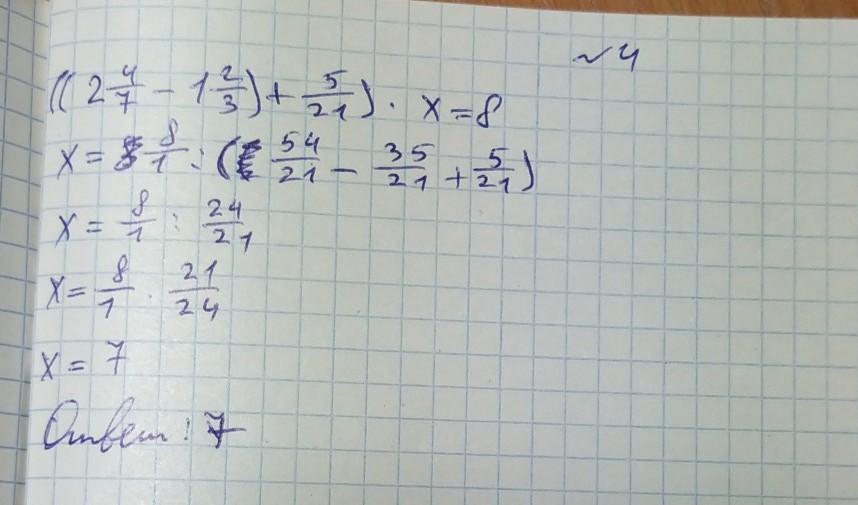 ~ 4
((2 4/7 - 1 2/3) + 5/21) · x = 8
x = 8/1 : (54/21 - 35/21 + 5/21)
x = 8/1 : 24/21
x = 8/1 · 21/24
x = 7
Ответ: 7